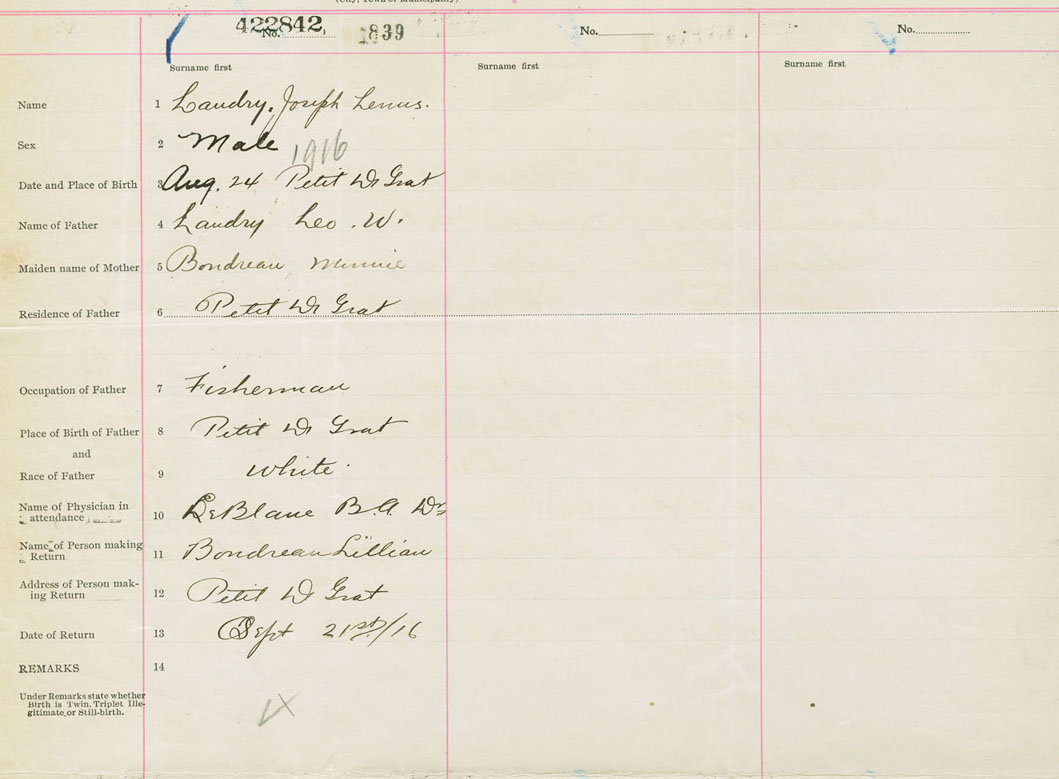 (City, Town or Municipality)
No. 422842, 1839 No. No.
Surname first Surname first Surname first
Name 1 Landry, Joseph Lenus.
Sex 2 Male 1916
Date and Place of Birth 3 Aug. 24 Petit Dr Grat
Name of Father 4 Landry Leo . W.
Maiden name of Mother 5 Bondreau Minnie
Residence of Father 6 Petit Dr Grat
Occupation of Father 7 Fisherman
Place of Birth of Father 8 Petit Dr Grat
and
Race of Father 9 White.
Name of Physician in
attendance 10 LeBlanc B.A. Dr
Name of Person making
Return 11 Bondreau Lillian
Address of Person mak-
ing Return 12 Petit D Grat
Date of Return 13 Sept 21st/16
REMARKS 14
Under Remarks state whether
Birth is Twin, Triplet Ille-
gitimate, or Still-birth.